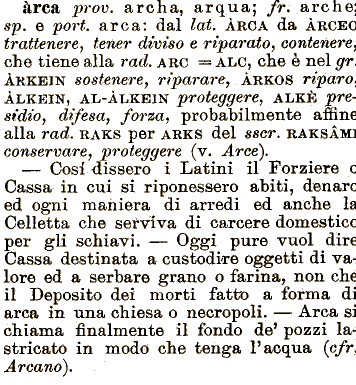 àrca prov. archa, arqua; fr. arche;
sp. e port. arca: dal lat. ÀRCA da ÀRCEO
trattenere, tener diviso e riparato, contenere,
che tiene alla rad. ARC = ALC, che è nel gr.
ÀRKEIN sostenere, riparare, ÀRKOS riparo,
ÀLKEIN, AL-ÀLKEIN proteggere, ALKÈ pre-
sidio, difesa, forza, probabilmente affine
alla rad. RAKS per ARKS del sscr. RAKSÂMI
conservare, proteggere (v. Arce).
— Così dissero i Latini il Forziere o
Cassa in cui si riponessero abiti, denaro
ed ogni maniera di arredi ed anche la
Celletta che serviva di carcere domestico
per gli schiavi. — Oggi pure vuol dire
Cassa destinata a custodire oggetti di va-
lore ed a serbare grano o farina, non che
il Deposito dei morti fatto a forma di
arca in una chiesa o necropoli. — Arca si
chiama finalmente il fondo de' pozzi la-
stricato in modo che tenga l'acqua (cfr.
Arcano).